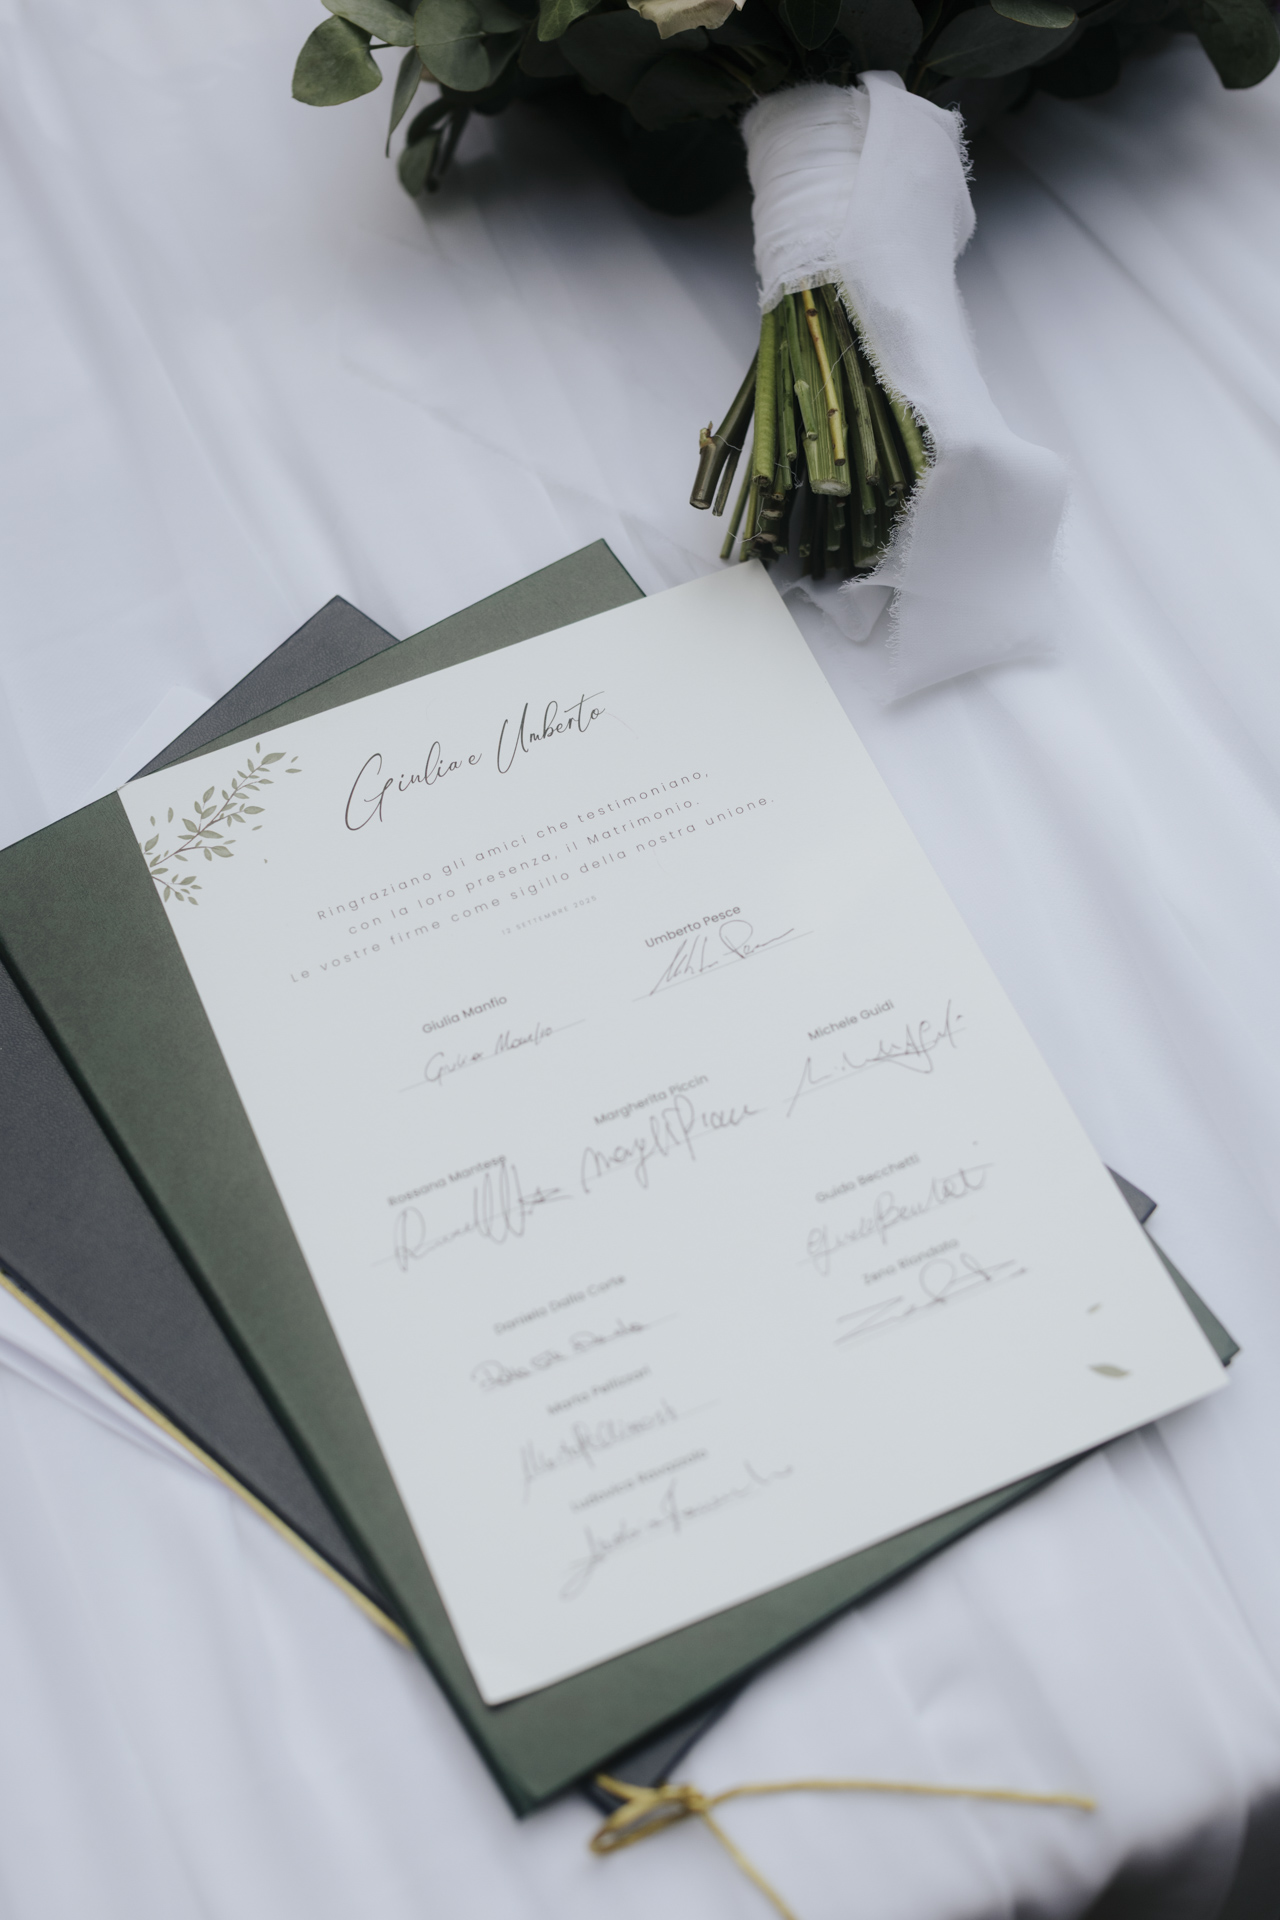 Giulia e Umberto
Ringraziano gli amici che testimoniano,
con la loro presenza, il Matrimonio.
Le vostre firme come sigillo della nostra unione.
12 SETTEMBRE 2025
Umberto Pesce
Giulia Manfio
Giulia Manfio
Michele Guidi
Margherita Piccin
Rossana Mantese
Guido Becchetti
Guido Becchetti
Zeno Biondato
Daniela Dalla Corte
Marta Pellizzari
Ludovica